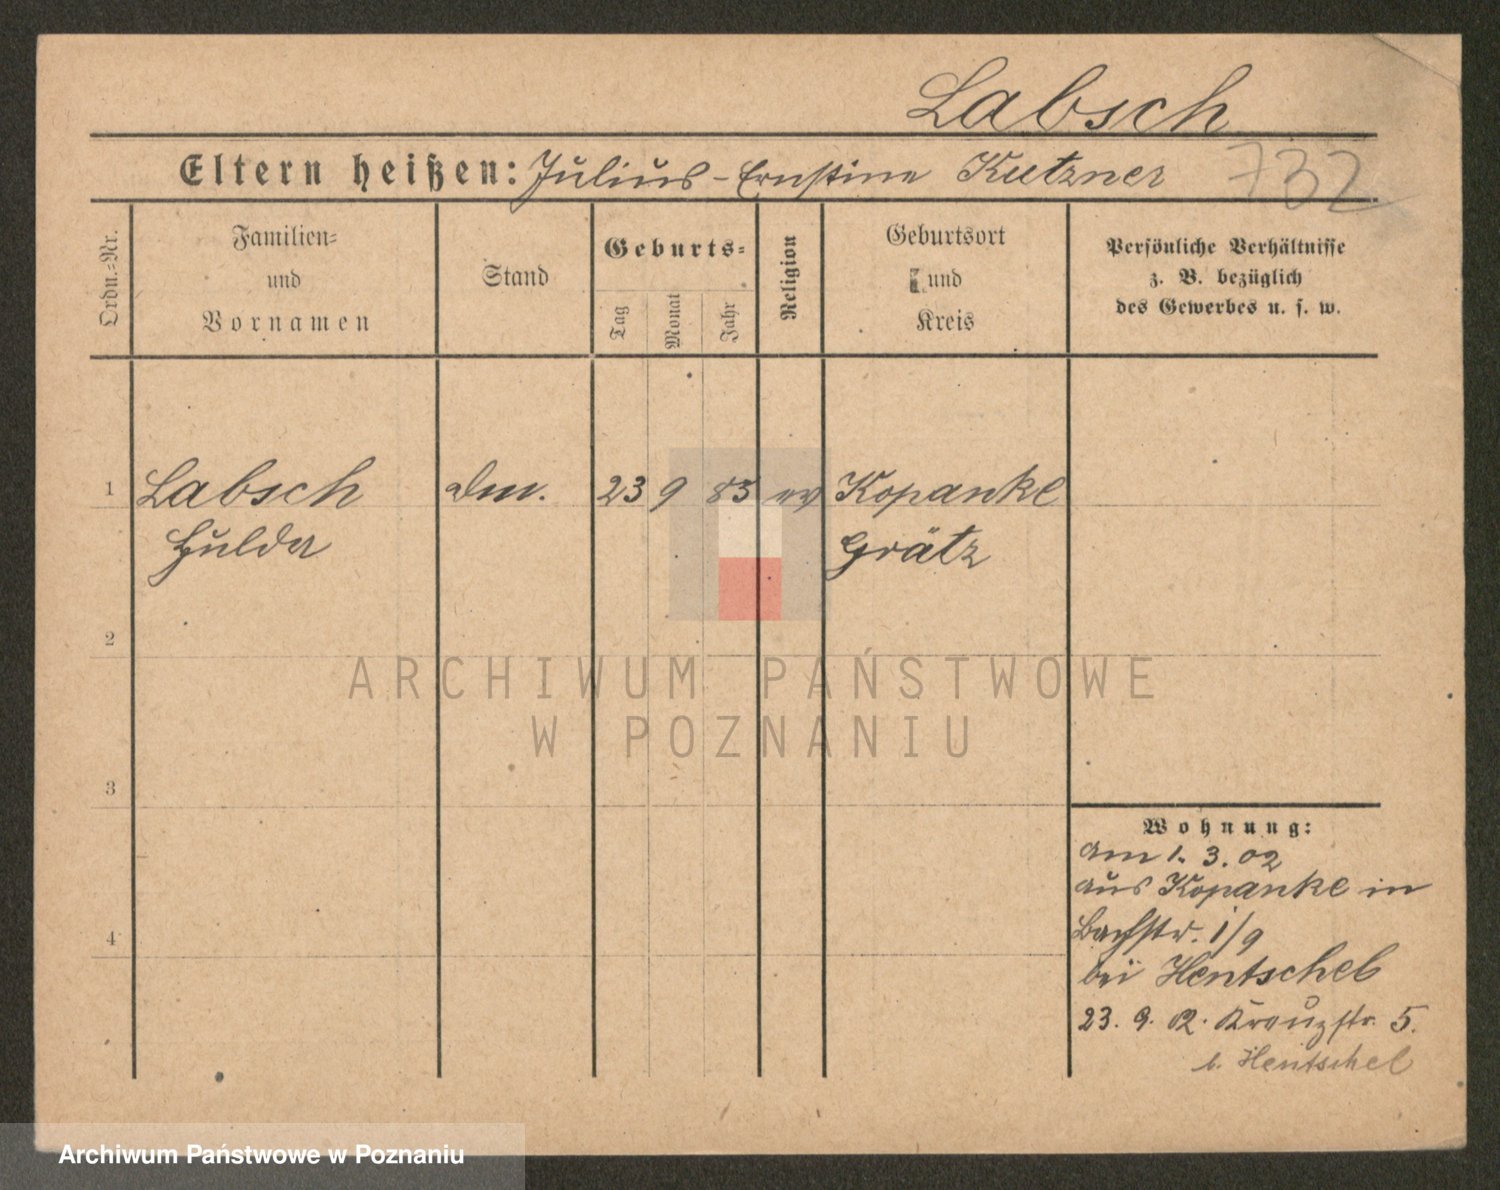 Labsch
Eltern heißen: Julius - Ernstine Kutzner 732
Ordn.=Nr.
Familien=
und
Vornamen
Stand
Geburts=
Tag
Monat
Jahr
Religion
Geburtsort
und
Kreis
Persönliche Verhältnisse
z. B. bezüglich
des Gewerbes u. s. w.
1 Labsch 23 9 83 ev Kopanke
Hulda Grätz
2
3
4
Wohnung:
am 1. 3. 02
aus Kopanke in
Bachstr. 1/9
bei Hentschel
23. 9. 02. Kreuzstr. 5.
b. Hentschel
ARCHIWUM PAŃSTWOWE
W POZNANIU
Archiwum Państwowe w Poznaniu